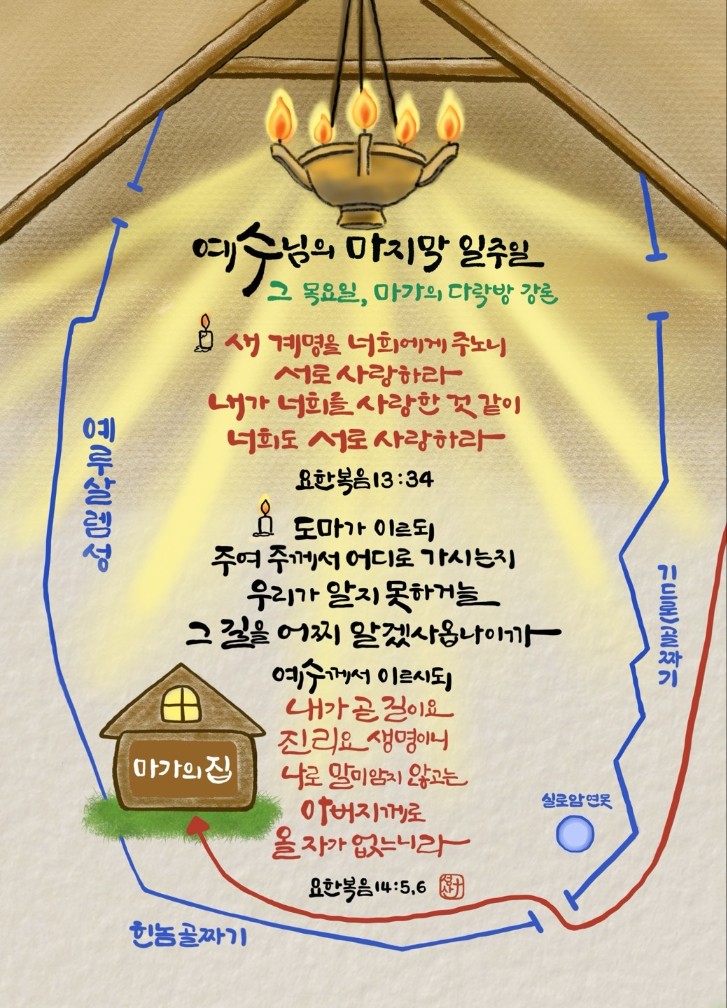 예수님의 마지막 일주일
그 목요일, 마가의 다락방 강론
새 계명을 너희에게 주노니
서로 사랑하라
내가 너희를 사랑한 것 같이
너희도 서로 사랑하라
요한복음 13:34
도마가 이르되
주여 주께서 어디로 가시는지
우리가 알지 못하거늘
그 길을 어찌 알겠사옵나이까
예수께서 이르시되
내가 곧 길이요
진리요 생명이니
나로 말미암지 않고는
아버지께로
올 자가 없느니라
요한복음 14:5,6
예루살렘성
기드론골짜기
마가의 집
실로암 연못
힌놈골짜기